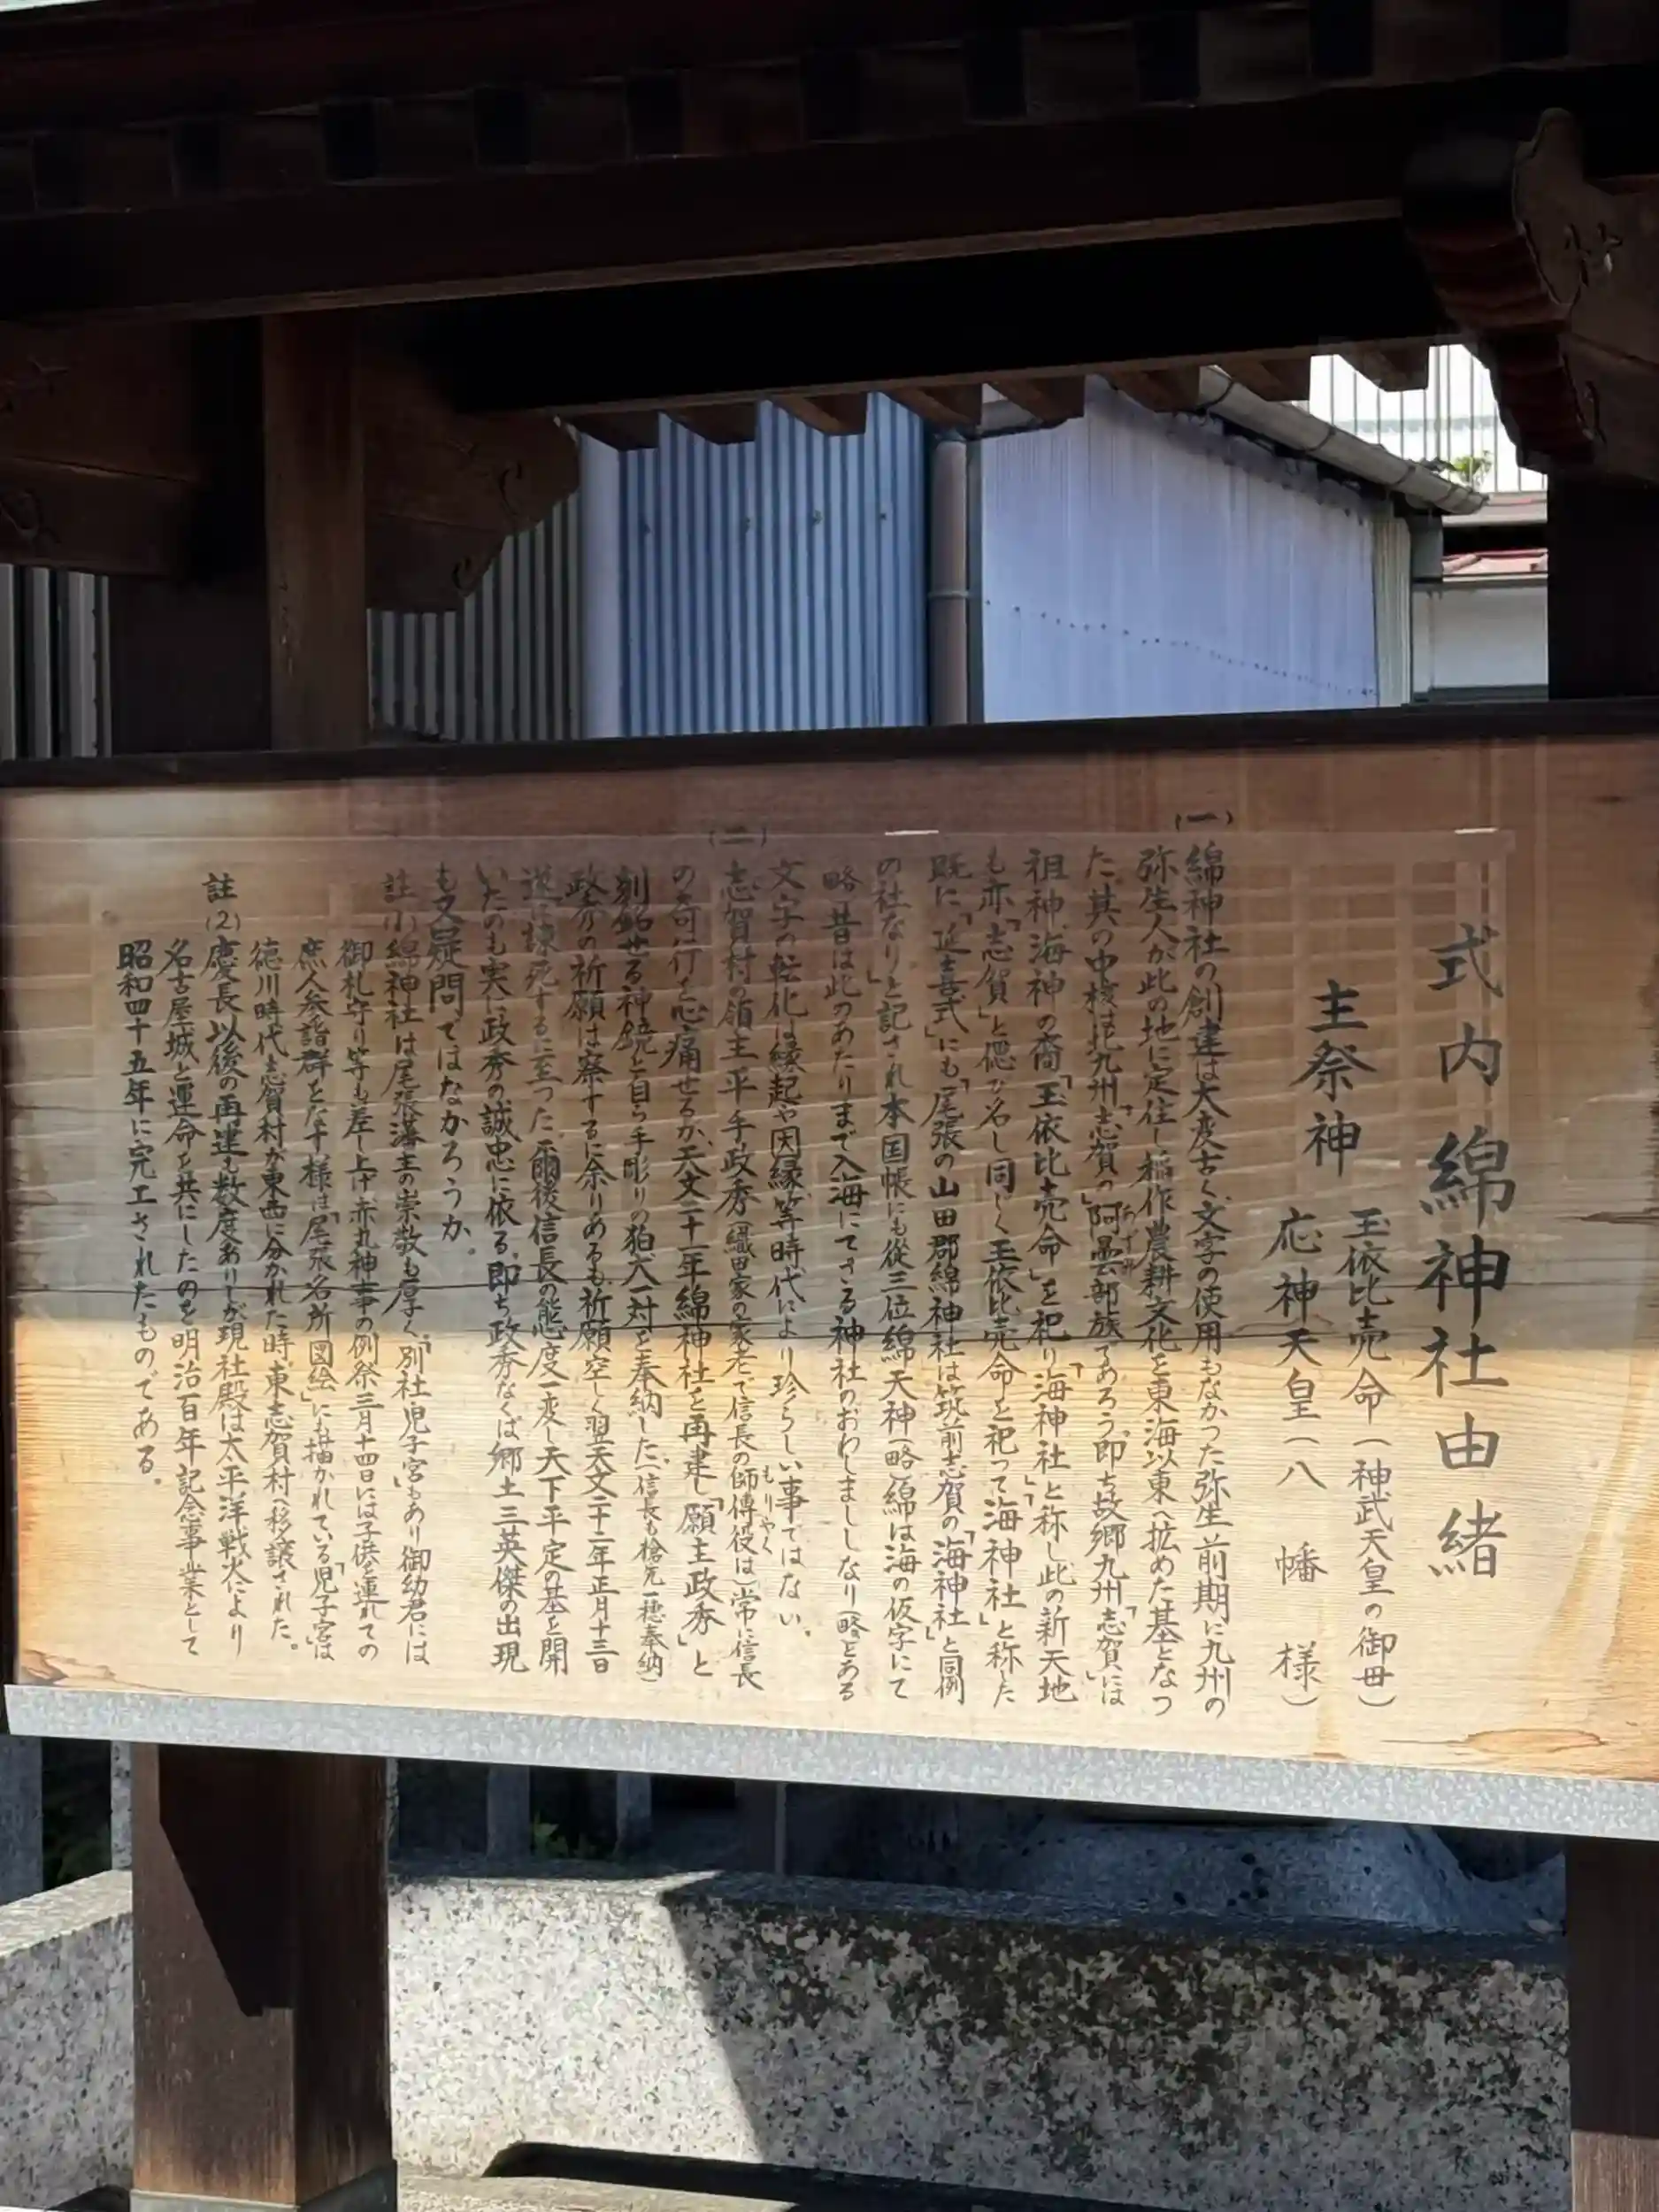 式内綿神社由緒
主祭神
玉依比売命(神武天皇の御母)
応神天皇(八幡様)
(一)
綿神社の創建は大変古く、文字の使用もなかった弥生前期に九州の
弥生人が此の地に定住し稲作農耕文化を東海以東へ拡めた基となつ
た。其の中核は北九州「志賀」の「阿曇部族」であろう、即ち故郷九州「志賀」には
あずみ
祖神、海神の裔「玉依比売命」を祀り「海神社」と称し、此の新天地
も亦「志賀」と偲び名し同じく玉依比売命を祀って「海神社」と称した
既に「延喜式」にも「尾張の山田郡綿神社は筑前志賀の「海神社」と同例
の社なり」と記され本国帳にも従三位綿天神(略)綿は海の仮字にて
略昔は此のあたりまで入海にてさる神社のおわしまししなり(略)とある
文字の転化は縁起や因縁等時代により珍らしい事ではない。
(二)
志賀村の領主平手政秀(織田家の家老で信長の師傅役は)常に信長
もりやく
の奇行を心痛せるか、天文二十一年綿神社を再建し「願主政秀」と
刻銘せる神鏡と自ら手彫りの狛犬一対を奉納した。(信長も槍先一穂奉納)
政秀の祈願は察するに余りあるも、祈願空しく翌天文二十二年正月十三日
遂に諌死するに至つた、爾後信長の態度一変し天下平定の基を開
いたのも実に政秀の誠忠に依る、即ち政秀なくば郷土三英傑の出現
も又疑問ではなかろうか。
註(1)綿神社は尾張藩主の崇敬も厚く、「別社児子宮」もあり御幼君には
御札守り等も差し上げ赤丸神事の例祭三月十四日には子供を連れての
庶人参詣群をなす様は「尾張名所図絵」にも描かれている「児子宮」は
徳川時代志賀村が東西に分かれた時、東志賀村へ移譲された。
註(2)慶長以後の再建も数度ありしが現社殿は太平洋戦火により
名古屋城と運命を共にしたのを明治百年記念事業として
昭和四十五年に完工されたものである。